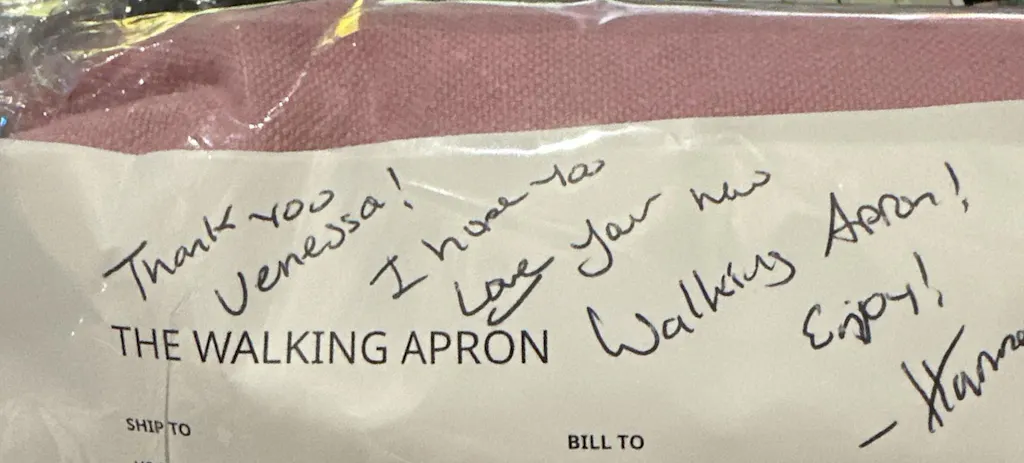 Thank you
Venessa!
I hope you
Love your new
Walking Apron!
Enjoy!
THE WALKING APRON
SHIP TO
BILL TO